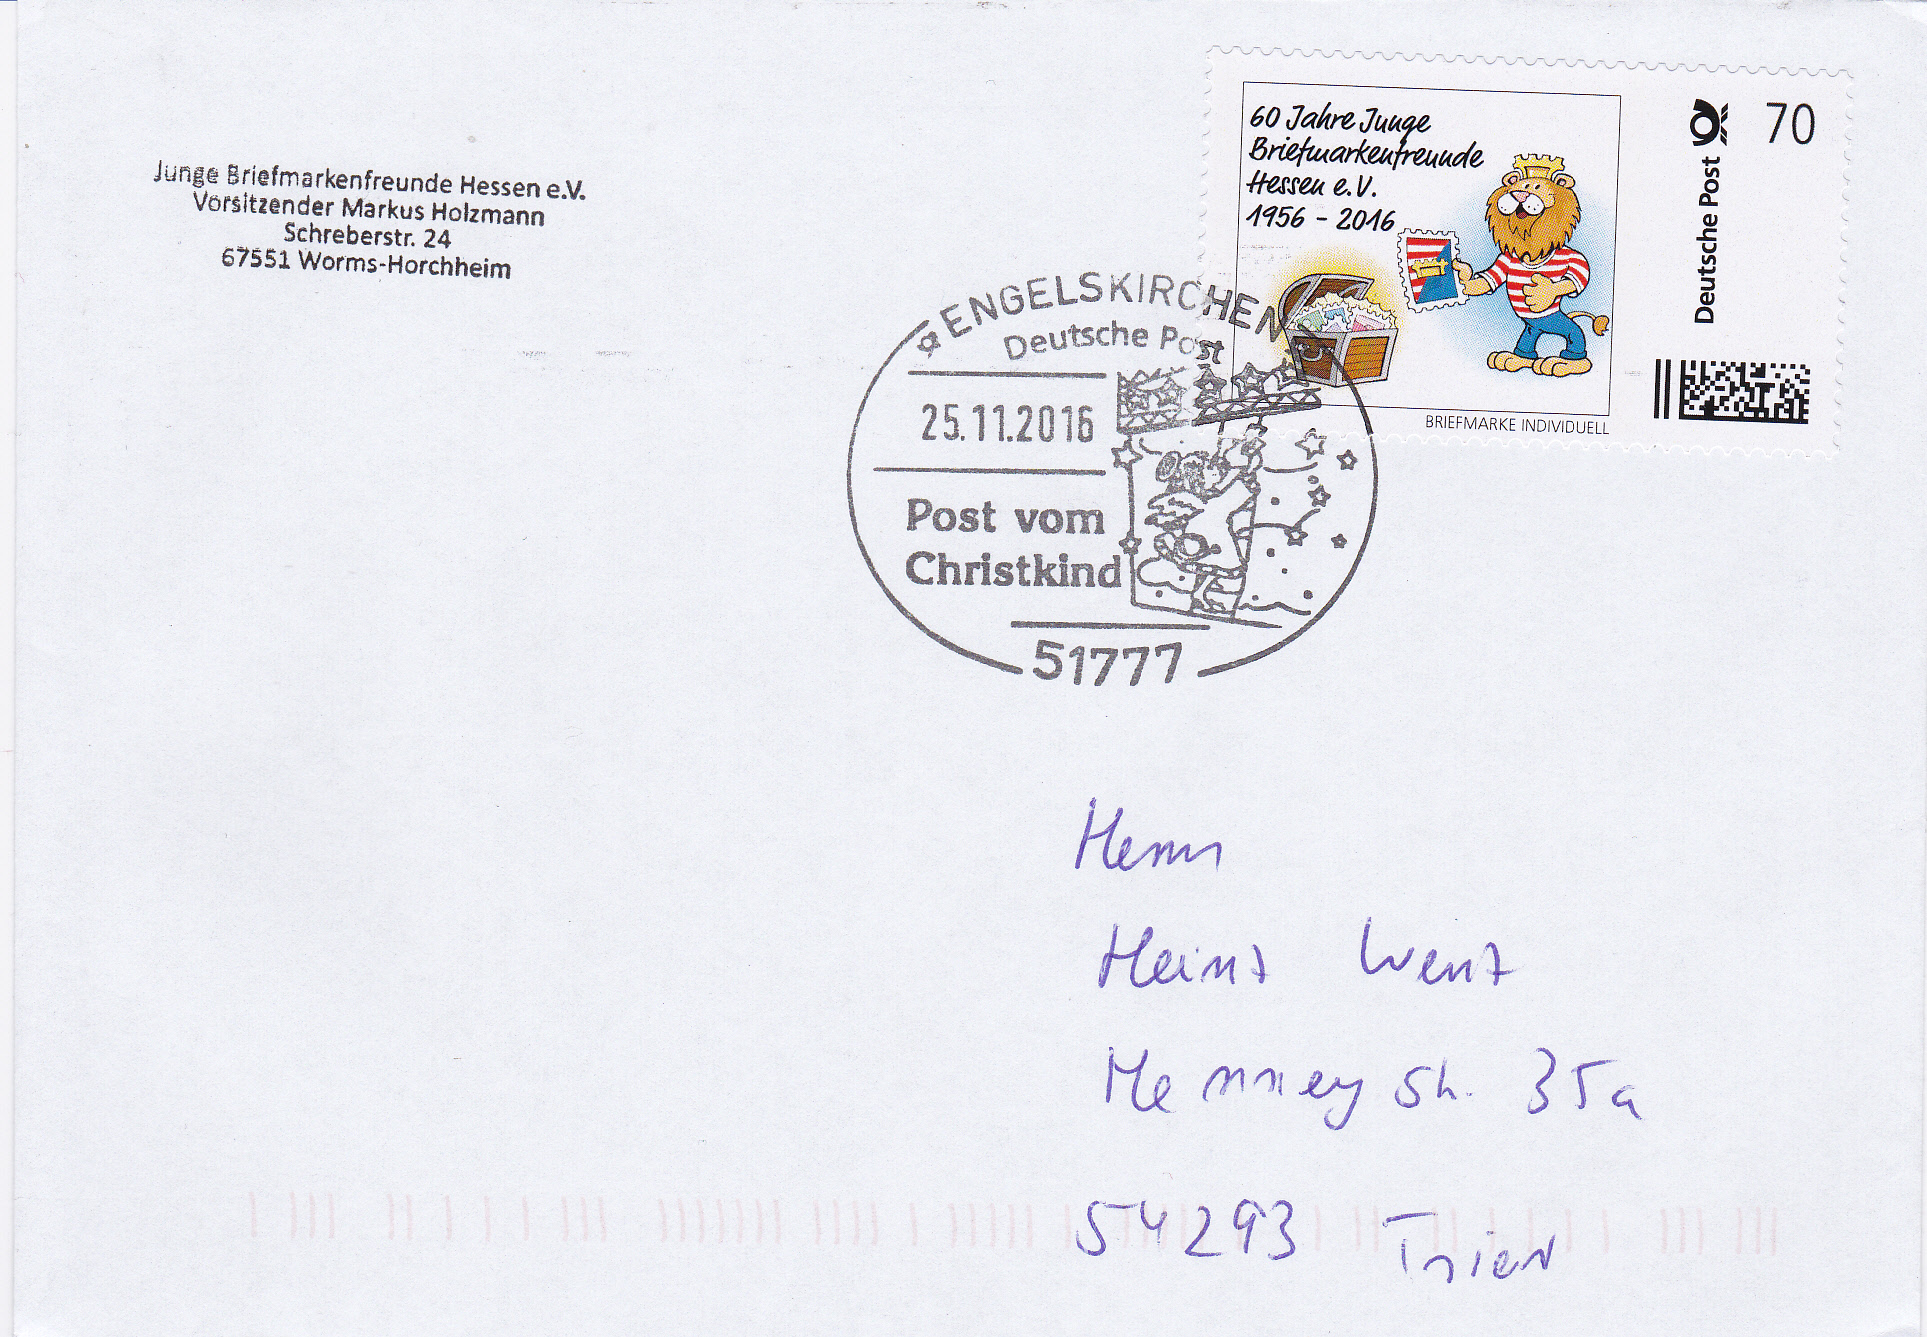 Junge Briefmarkenfreunde Hessen e.V.
Vorsitzender Markus Holzmann
Schreberstr. 24
67551 Worms-Horchheim
60 Jahre Junge
Briefmarkenfreunde
Hessen e.V.
1956 - 2016
Deutsche Post
70
BRIEFMARKE INDIVIDUELL
ENGELSKIRCHEN
Deutsche Post
25.11.2016
Post vom
Christkind
51777
Herrn
Heinz Wenz
Str. 35a
54293 Trier